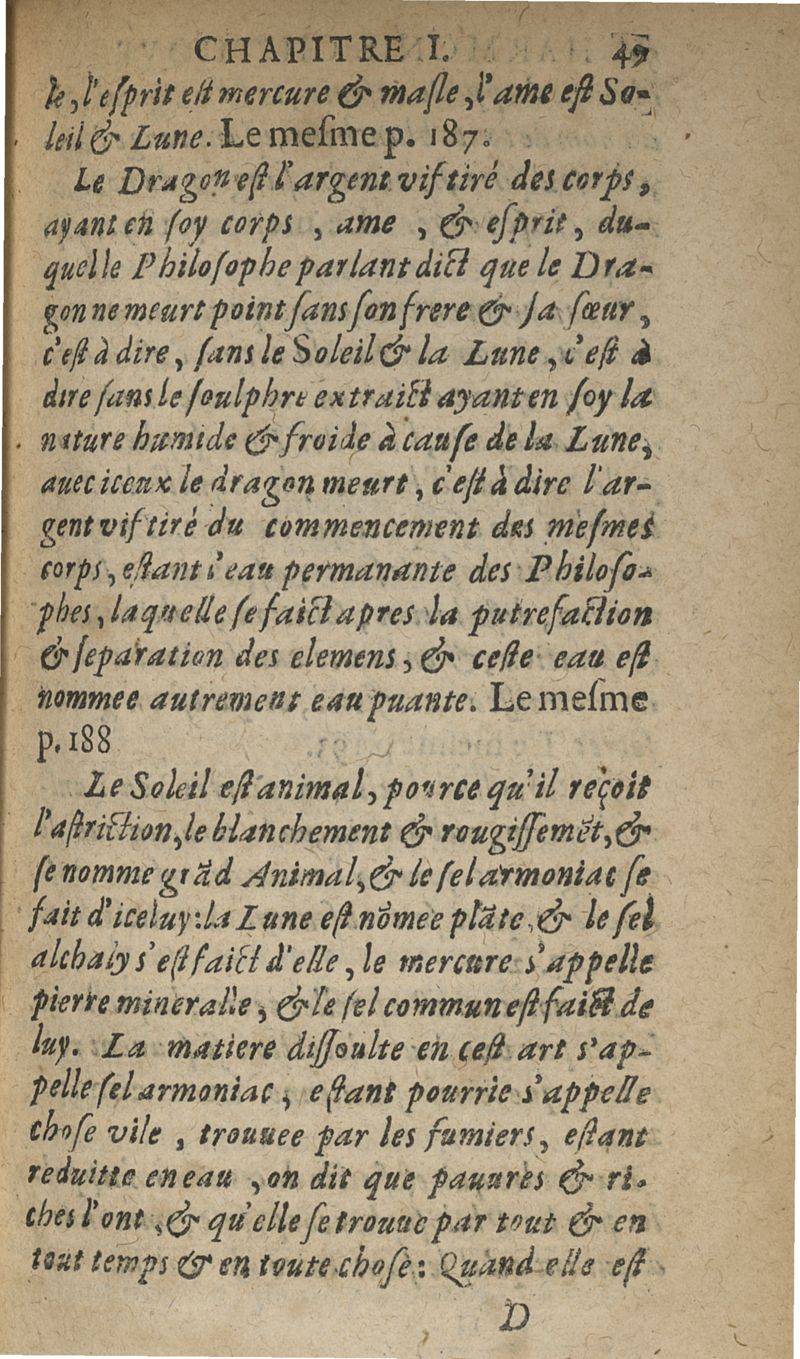 CHAPITRE I. 49
le, l'eſprit eſt mercure & maſle, l'ame eſt So-
leil & Lune. Le meſme p. 187.
Le Dragon eſt l'argent vif tiré des corps,
ayant en ſoy corps, ame, & eſprit, du-
quel le Philoſophe parlant dict que le Dra-
gon ne meurt point ſans ſon frere & ſa ſœur,
c'eſt à dire, ſans le Soleil & la Lune, c'eſt à
dire ſans le ſoulphre extraict ayant en ſoy la
nature humide & froide à cauſe de la Lune,
auec iceux le dragon meurt, c'eſt à dire l'ar-
gent vif tiré du commencement des meſmes
corps, eſtant l'eau permanante des Philoſo-
phes, laquelle ſe faict apres la putrefaction
& ſeparation des elemens, & ceſte eau eſt
nommee autrement eau puante. Le meſme
p. 188
Le Soleil eſt animal, pource qu'il reçoit
l'aſtriction, le blanchement & rougiſſemẽt, &
ſe nomme grãd Animal, & le ſel armoniac ſe
fait d'iceluy: la Lune eſt nõmee plãte, & le ſel
alchaly s'eſt faict d'elle, le mercure s'appelle
pierre mineralle, & le ſel commun eſt faict de
luy. La matiere diſſoulte en ceſt art s'ap-
pelle ſel armoniac, eſtant pourrie s'appelle
choſe vile, trouuee par les fumiers, eſtant
reduitte en eau, on dit que pauures & ri-
ches l'ont, & qu'elle ſe trouue par tout & en
tout temps & en toute choſe: Quand elle eſt
D